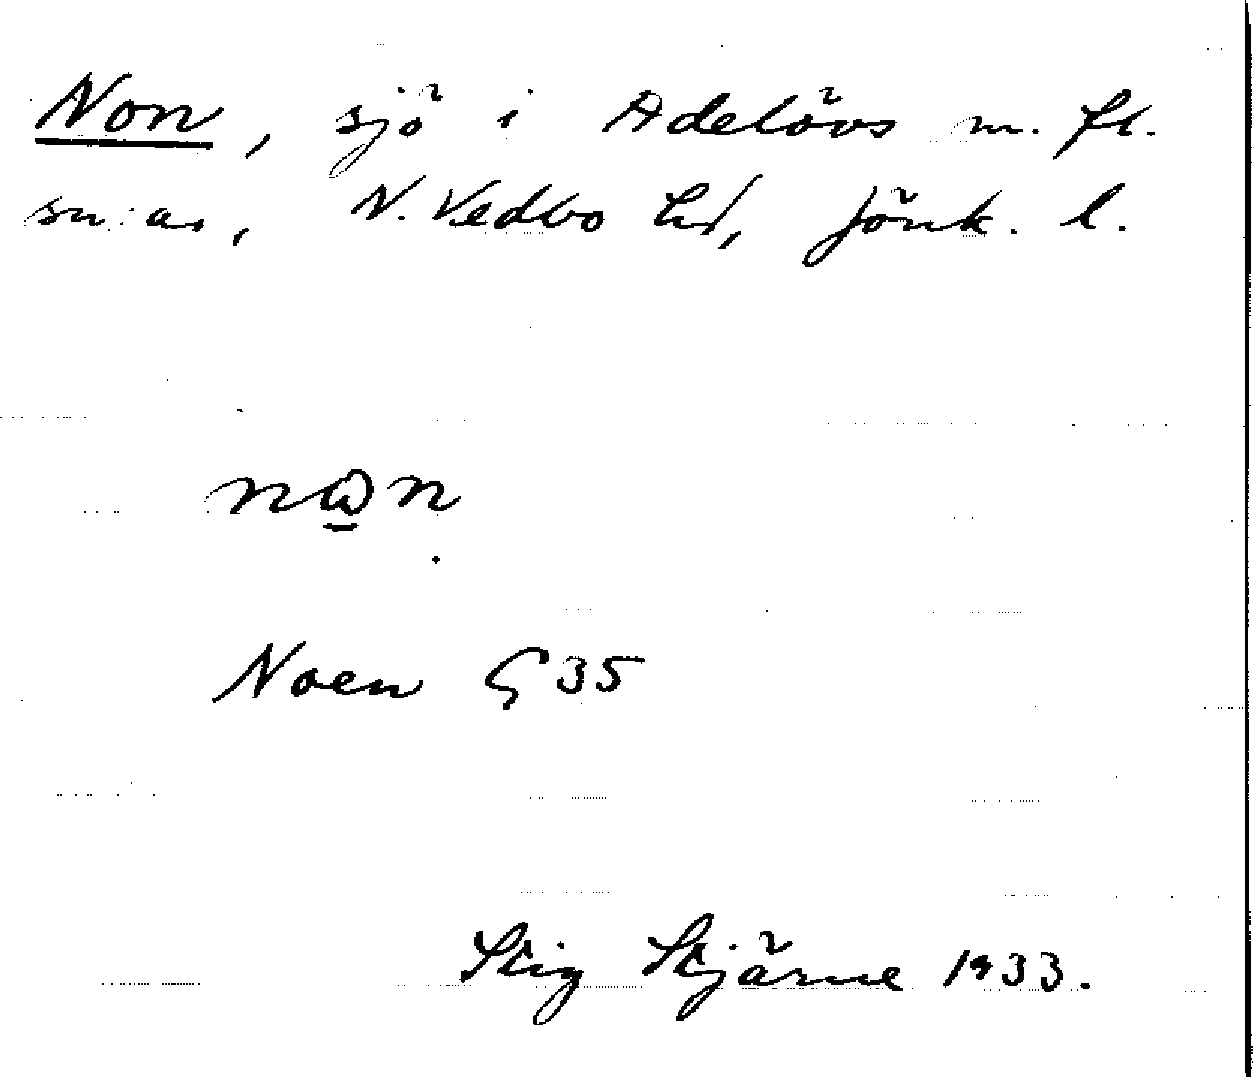 Non, sjö i Adelövs m. fl.
sn:ar, N. Vedbo hd, Jönk. l.
Noen G 35
Stig Stjärne 1933.